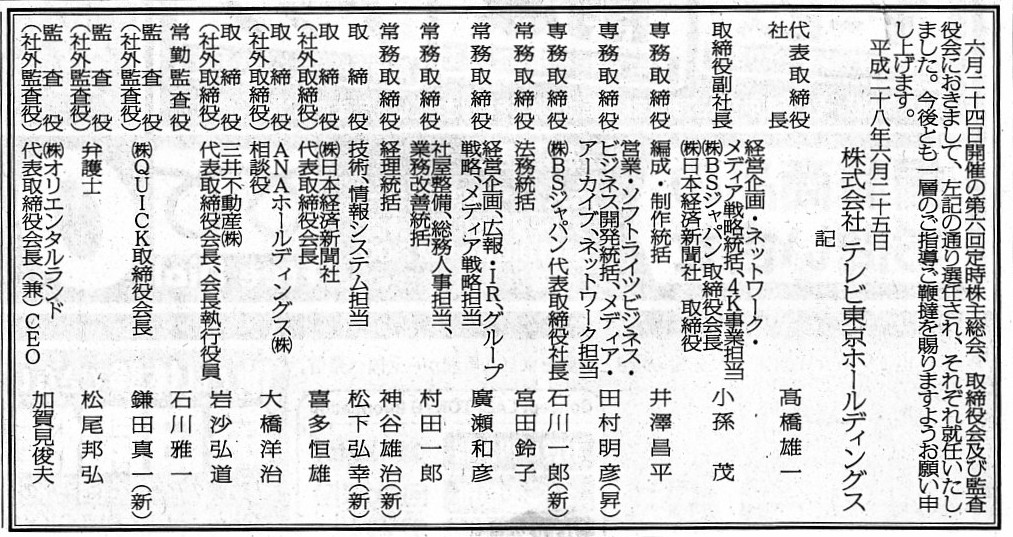 六月二十四日開催の第六回定時株主総会、取締役会及び監査
役会におきまして、左記の通り選任され、それぞれ就任いたし
ました。今後とも一層のご指導ご鞭撻を賜りますようお願い申
し上げます。
平成二十八年六月二十五日
株式会社 テレビ東京ホールディングス
記
代表取締役
社長
髙橋雄一
取締役副社長
経営企画・ネットワーク・
メディア戦略統括、4K事業担当
㈱BSジャパン 取締役会長
㈱日本経済新聞社 取締役
小孫 茂
専務取締役
編成・制作統括
井澤昌平
専務取締役
営業・ソフトライツビジネス・
ビジネス開発統括、メディア・
アーカイブ、ネットワーク担当
田村明彦(昇)
専務取締役
㈱BSジャパン 代表取締役社長
石川一郎(新)
常務取締役
法務統括
宮田鈴子
常務取締役
経営企画、広報・IRグループ
戦略、メディア戦略担当
廣瀬和彦
常務取締役
社屋整備、総務人事担当、
業務改善統括
村田一郎
常務取締役
経理統括
神谷雄治(新)
取締役
技術、情報システム担当
松下弘幸(新)
取締役
(社外取締役)
㈱日本経済新聞社
代表取締役会長
喜多恒雄
取締役
(社外取締役)
ANAホールディングス㈱
相談役
大橋洋治
取締役
(社外取締役)
三井不動産㈱
代表取締役会長、会長執行役員
岩沙弘道
常勤監査役
石川雅一
監査役
(社外監査役)
㈱QUICK取締役会長
鎌田真一(新)
監査役
(社外監査役)
弁護士
松尾邦弘
監査役
(社外監査役)
㈱オリエンタルランド
代表取締役会長(兼)CEO
加賀見俊夫